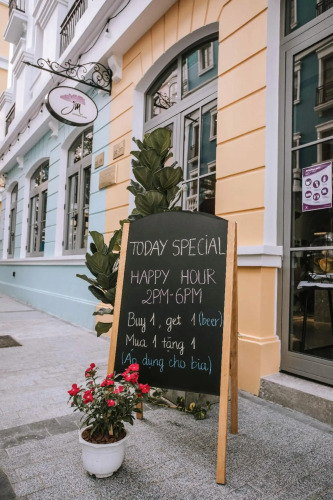 TODAY SPECIAL
HAPPY HOUR
2PM-6PM
Buy 1, get 1 (beer)
Mua 1 tặng 1
(Áp dụng cho bia)